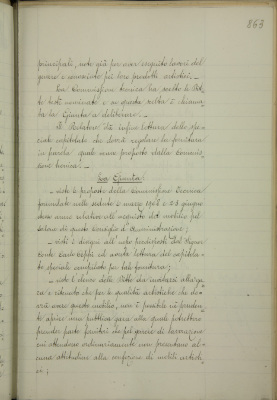 863
principali, note già per aver eseguito lavori del
genere e conosciute pei loro prodotti artistici. _
La Commissione tecnica ha scelto le Dit-
te testè nominate e su questa scelta è chiama-
ta la Giunta a deliberare. _
Il Relatore dà infine lettura dello spe-
ciale capitolato che dovrà regolare la fornitura
in parola quale viene proposto dalla commis-
sione tecnica. _
La Giunta:
_ viste le proposte della Commissione Tecnica
formulate nelle sedute 2 marzo 1926 e 23 giugno
stesso anno relative all'acquisto del mobilio pel
salone di questo consiglio d'Amministrazione;
_ visti i disegni all'uopo predisposti dal Signor
conte Carlo Ceppi ed avuta lettura del capitola-
to speciale compilato per tale fornitura;
_ visto l'elenco delle Ditte da invitarsi alla ga-
ra e ritenuto che per le qualità artistiche che do-
vrà avere questo mobilio, non è possibile nè pruden-
te aprire una pubblica gara alla quale potrebbero
prender parte fornitori che pel genere di lavorazione
cui attendono ordinariamente non presentano al-
cuna attitudine alla confezione di mobili artisti-
ci;